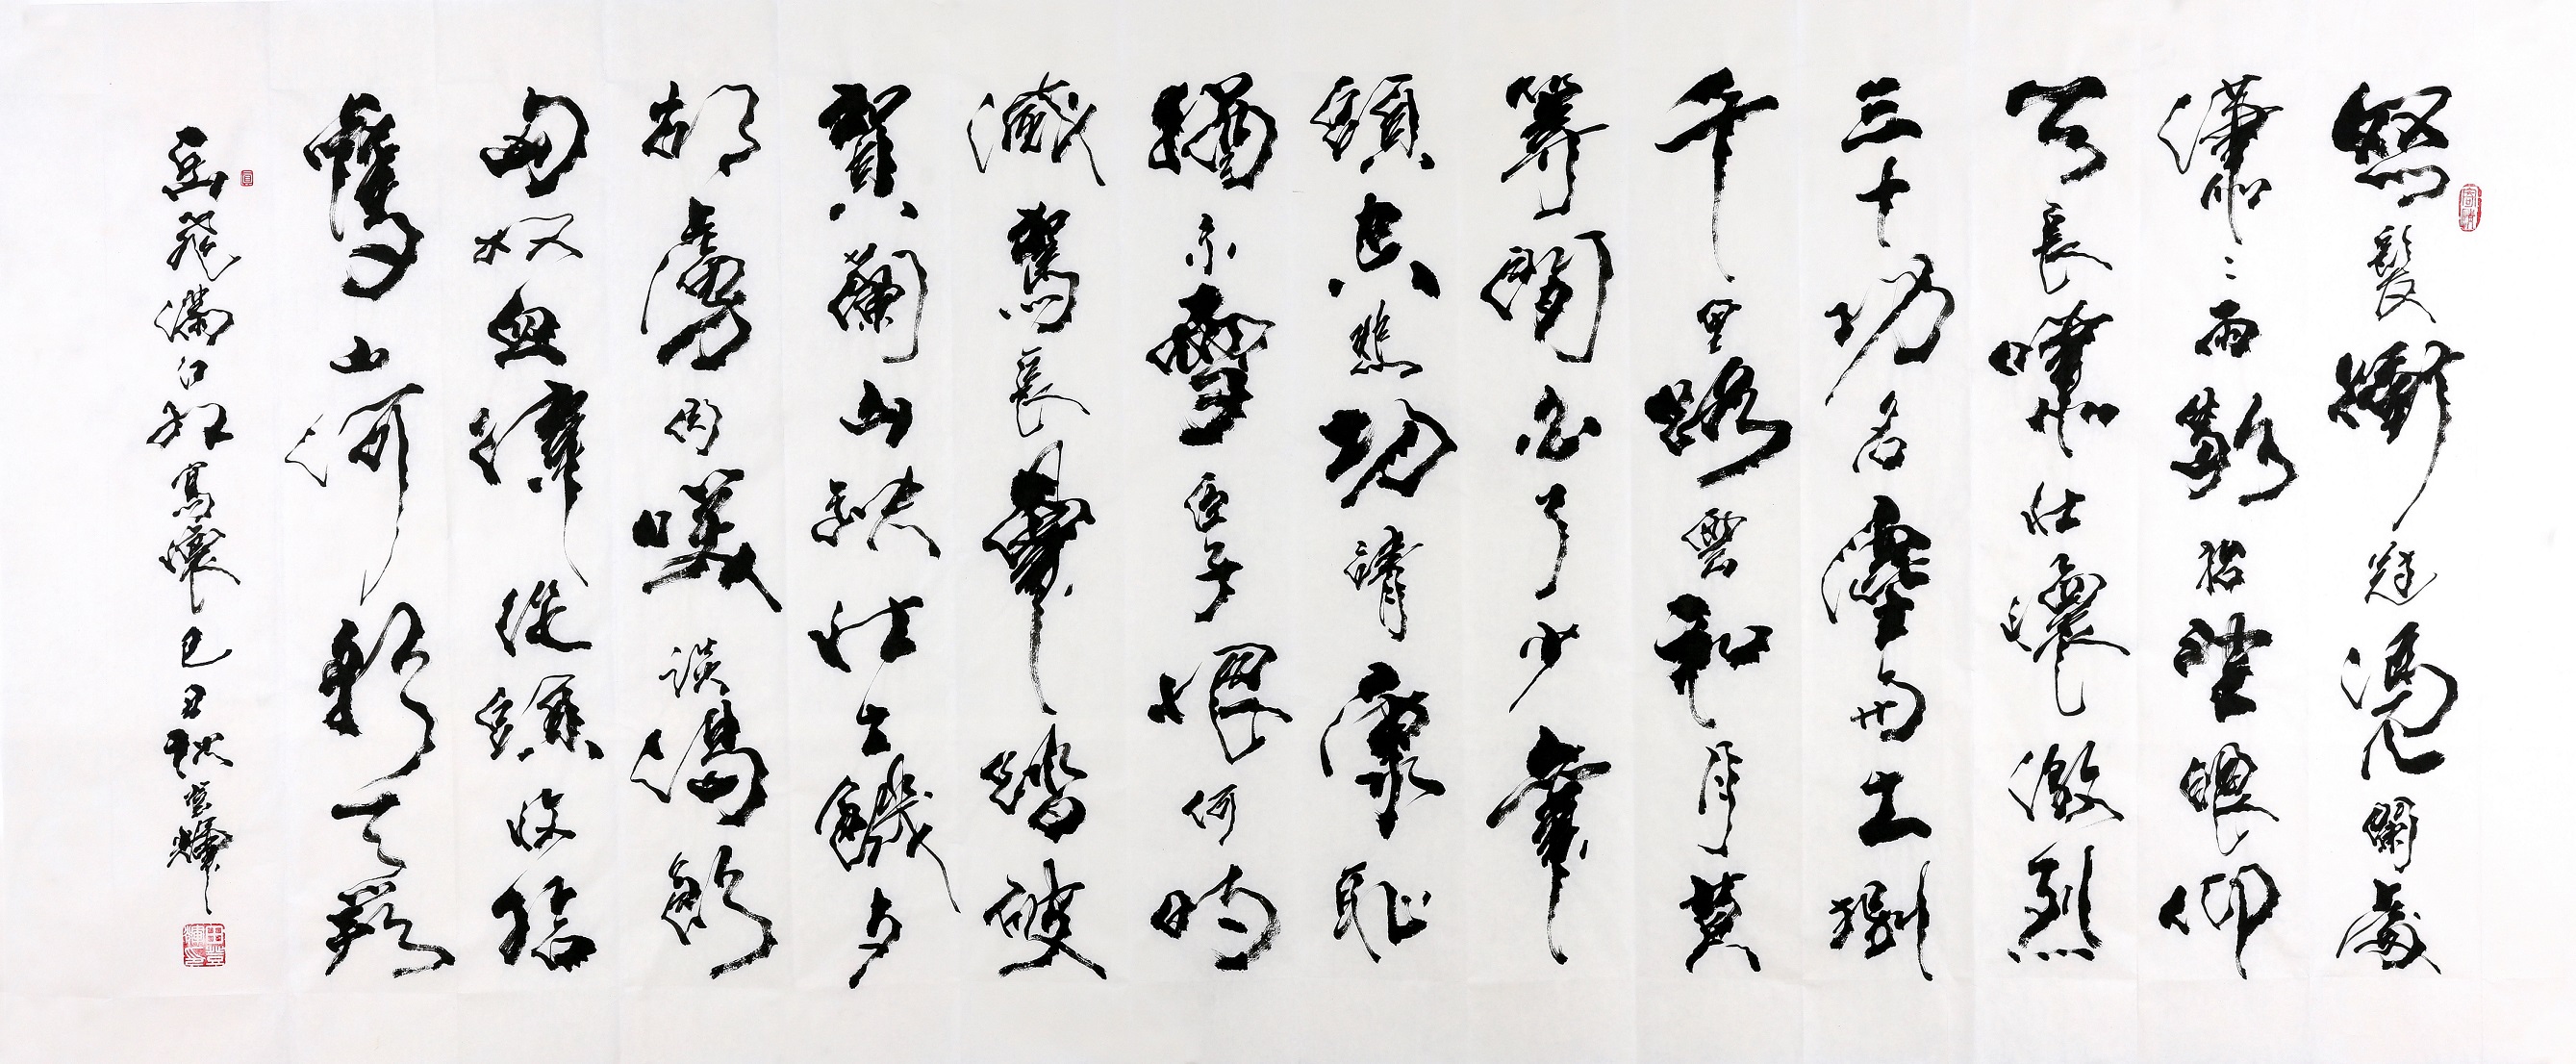 怒髮衝冠憑闌處
瀟〻雨歇抬望眼仰
天長嘯壯懷激烈
三十功名塵与土捌
千里路雲和月莫
等閑白了少年
頭空悲切靖康恥
猶未雪臣子恨何時
滅駕長車踏破
賀蘭山缺壯志饑歺
胡虜肉笑談渴飲
匈奴血待從頭收拾
舊山河朝天闕
岳飛滿江紅寫懷己丑秋登輝
田登輝印